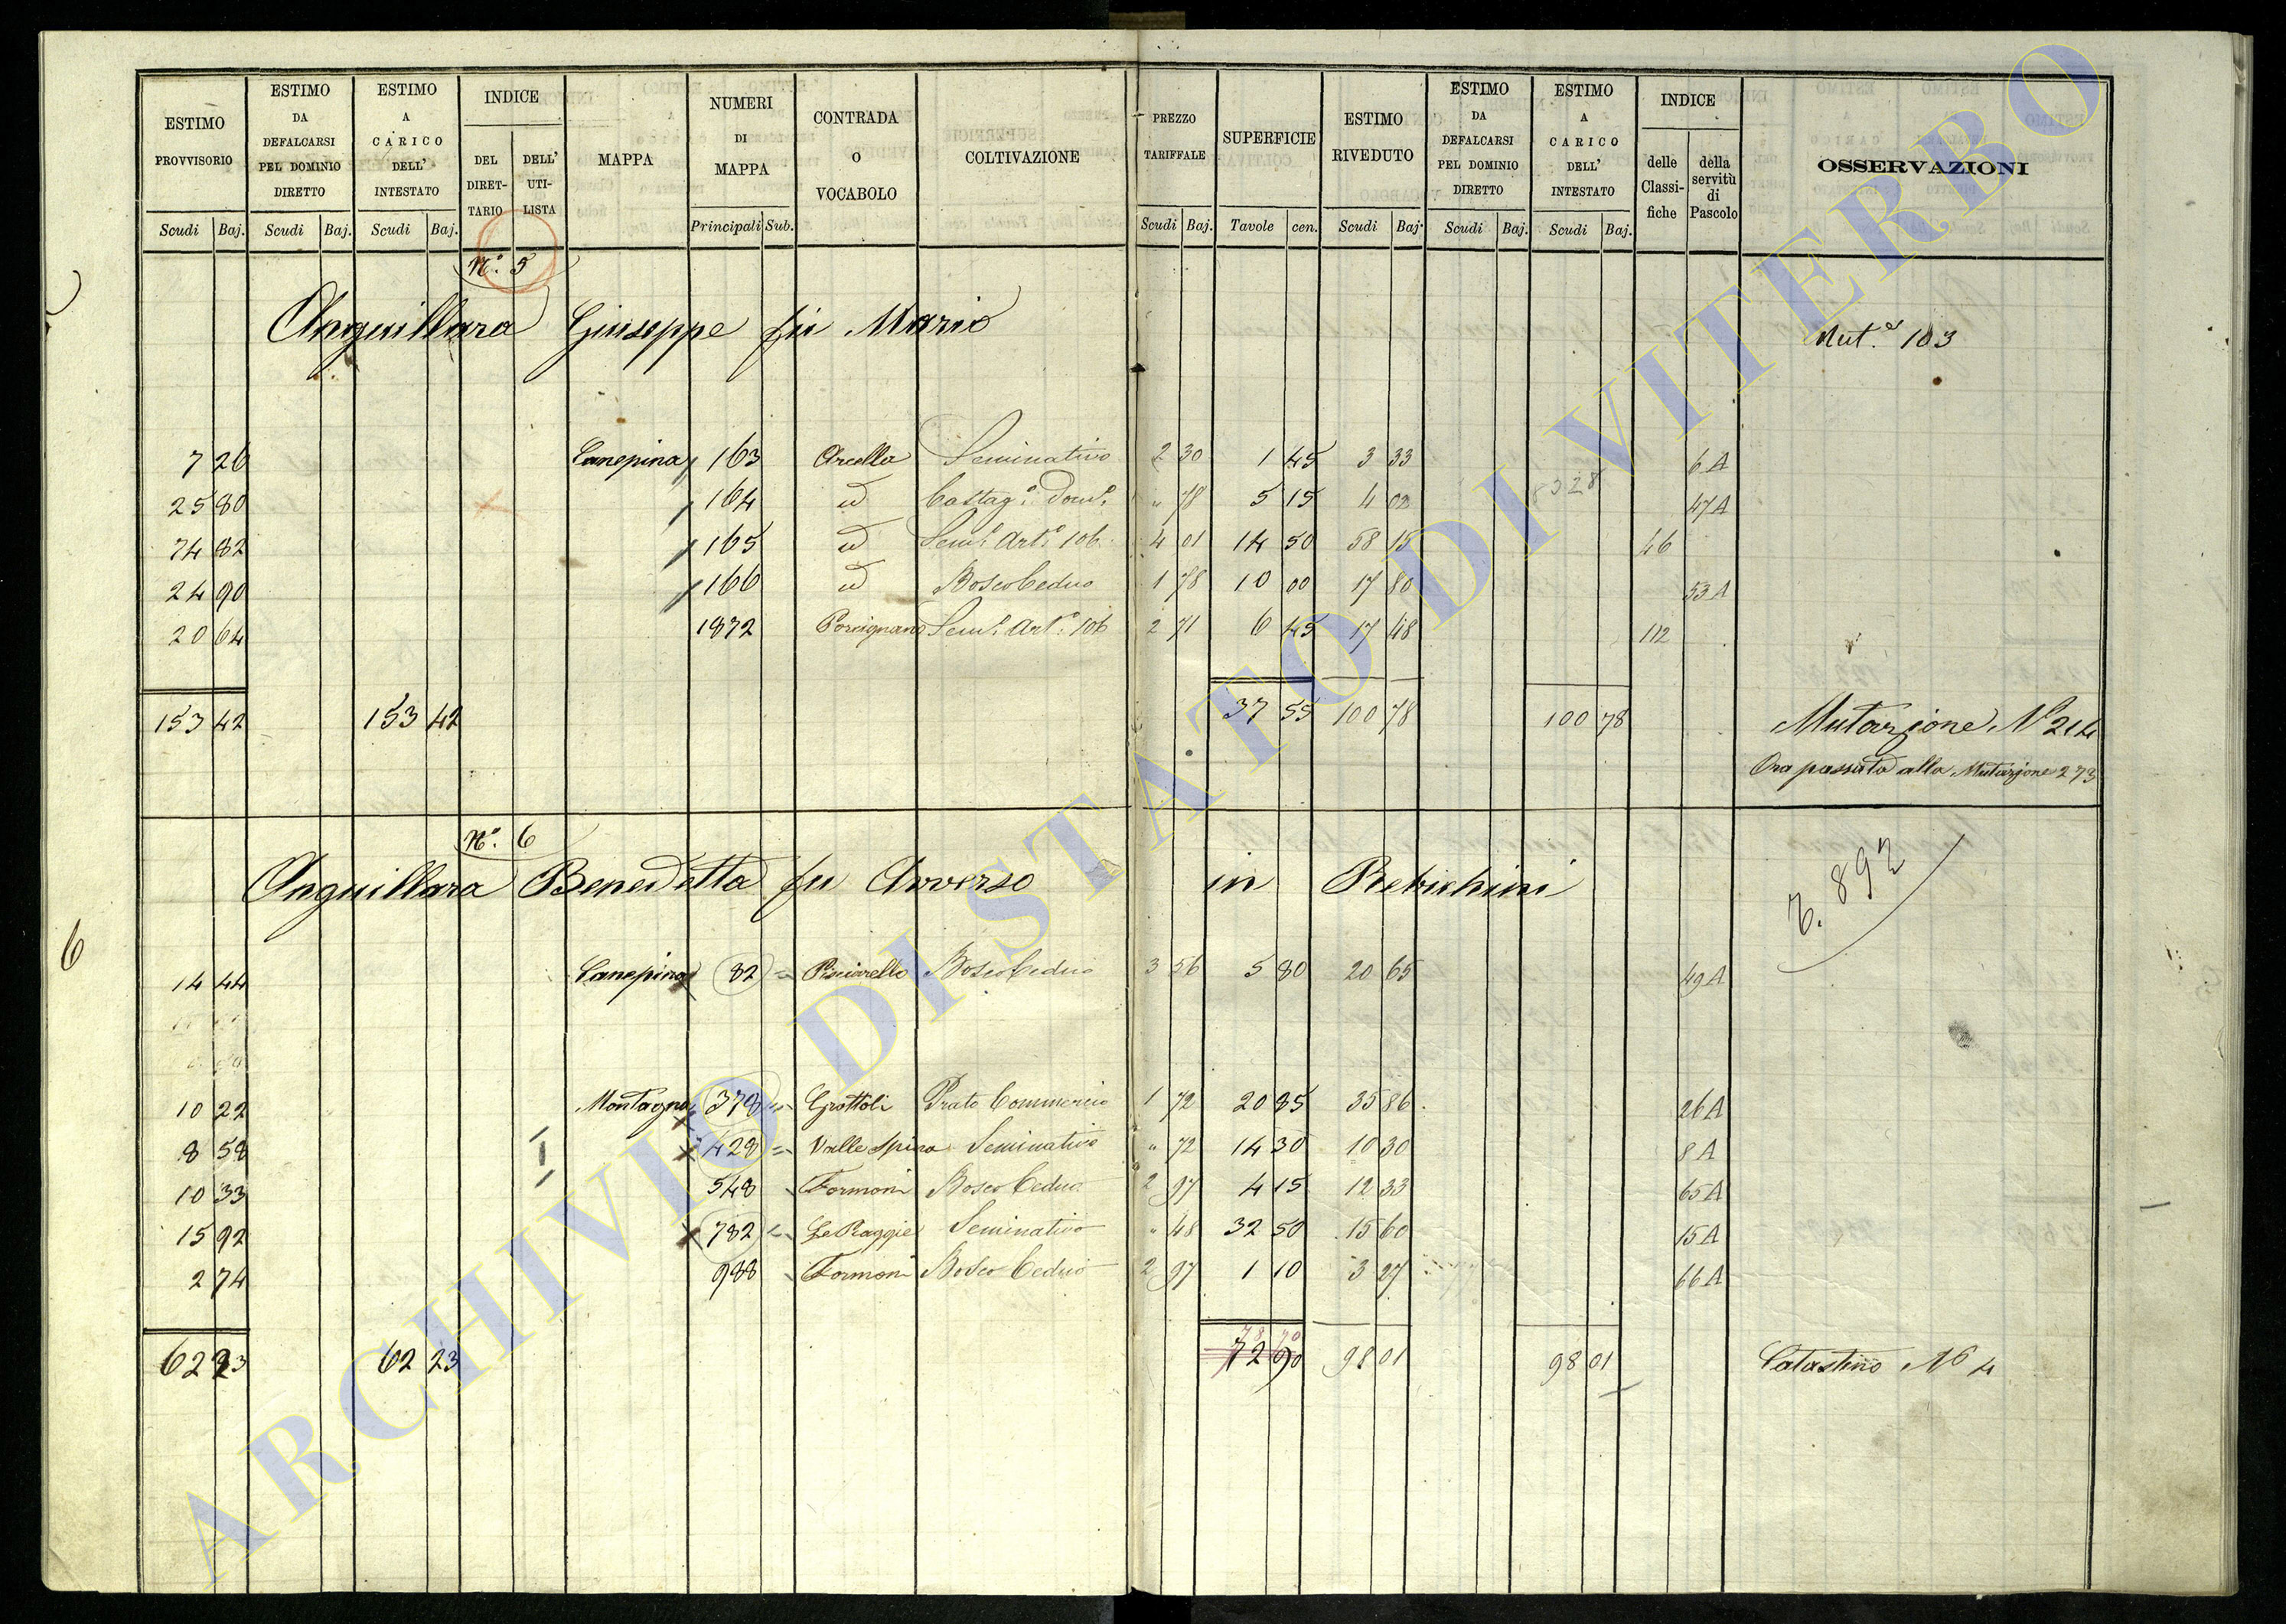 ESTIMO PROVVISORIO
Scudi Baj.
ESTIMO DA DEFALCARSI PEL DOMINIO DIRETTO
Scudi Baj.
ESTIMO A CARICO DELL' INTESTATO
Scudi Baj.
INDICE
DEL DIRET-TARIO
DELL' UTI-LISTA
MAPPA
NUMERI DI MAPPA
Principali Sub.
CONTRADA O VOCABOLO
COLTIVAZIONE
PREZZO TARIFFALE
Scudi Baj.
SUPERFICIE
Tavole cen.
ESTIMO RIVEDUTO
Scudi Baj.
ESTIMO DA DEFALCARSI PEL DOMINIO DIRETTO
Scudi Baj.
ESTIMO A CARICO DELL' INTESTATO
Scudi Baj.
INDICE
delle Classi-fiche
della servitù di Pascolo
OSSERVAZIONI
N.° 5
Anguillara Giuseppe fu Mario
Mut.e 103
7 26 Canepina 163 Arcella Seminativo 2 30 1 45 3 33 6 A
25 80 164 id Castag.o Dom.o " 78 5 15 4 02 47 A
8328
74 82 165 id Sem.o Art.o 106 4 01 14 50 58 15 46
24 90 166 id Bosco Ceduo 1 78 10 00 17 80 53 A
20 64 1872 Porcignano Sem.o Art.o 106 2 71 6 45 17 48 112
153 42 153 42 37 55 100 78 100 78 Mutazione N° 214
Ora passata alla Mutazione 273
N.° 6
Anguillara Benedetta fu Avverso in Pietrichini
892
6
14 44 Canepina 82 Pisciarello Bosco Ceduo 3 56 5 80 20 65 49 A
10 22 Montagna 378 Grottoli Prato Commercio 1 72 20 85 35 86 26 A
8 58 428 Valle Spina Seminativo " 72 14 30 10 30 8 A
10 33 548 Formoni Bosco Ceduo 2 97 4 15 12 33 65 A
15 92 782 Le Piaggie Seminativo " 48 32 50 15 60 15 A
2 74 988 Formoni Bosco Ceduo 2 97 1 10 3 27 66 A
78 70
62 23 62 23 72 90 98 01 98 01 Catastino N° 4
ARCHIVIO DI STATO DI VITERBO